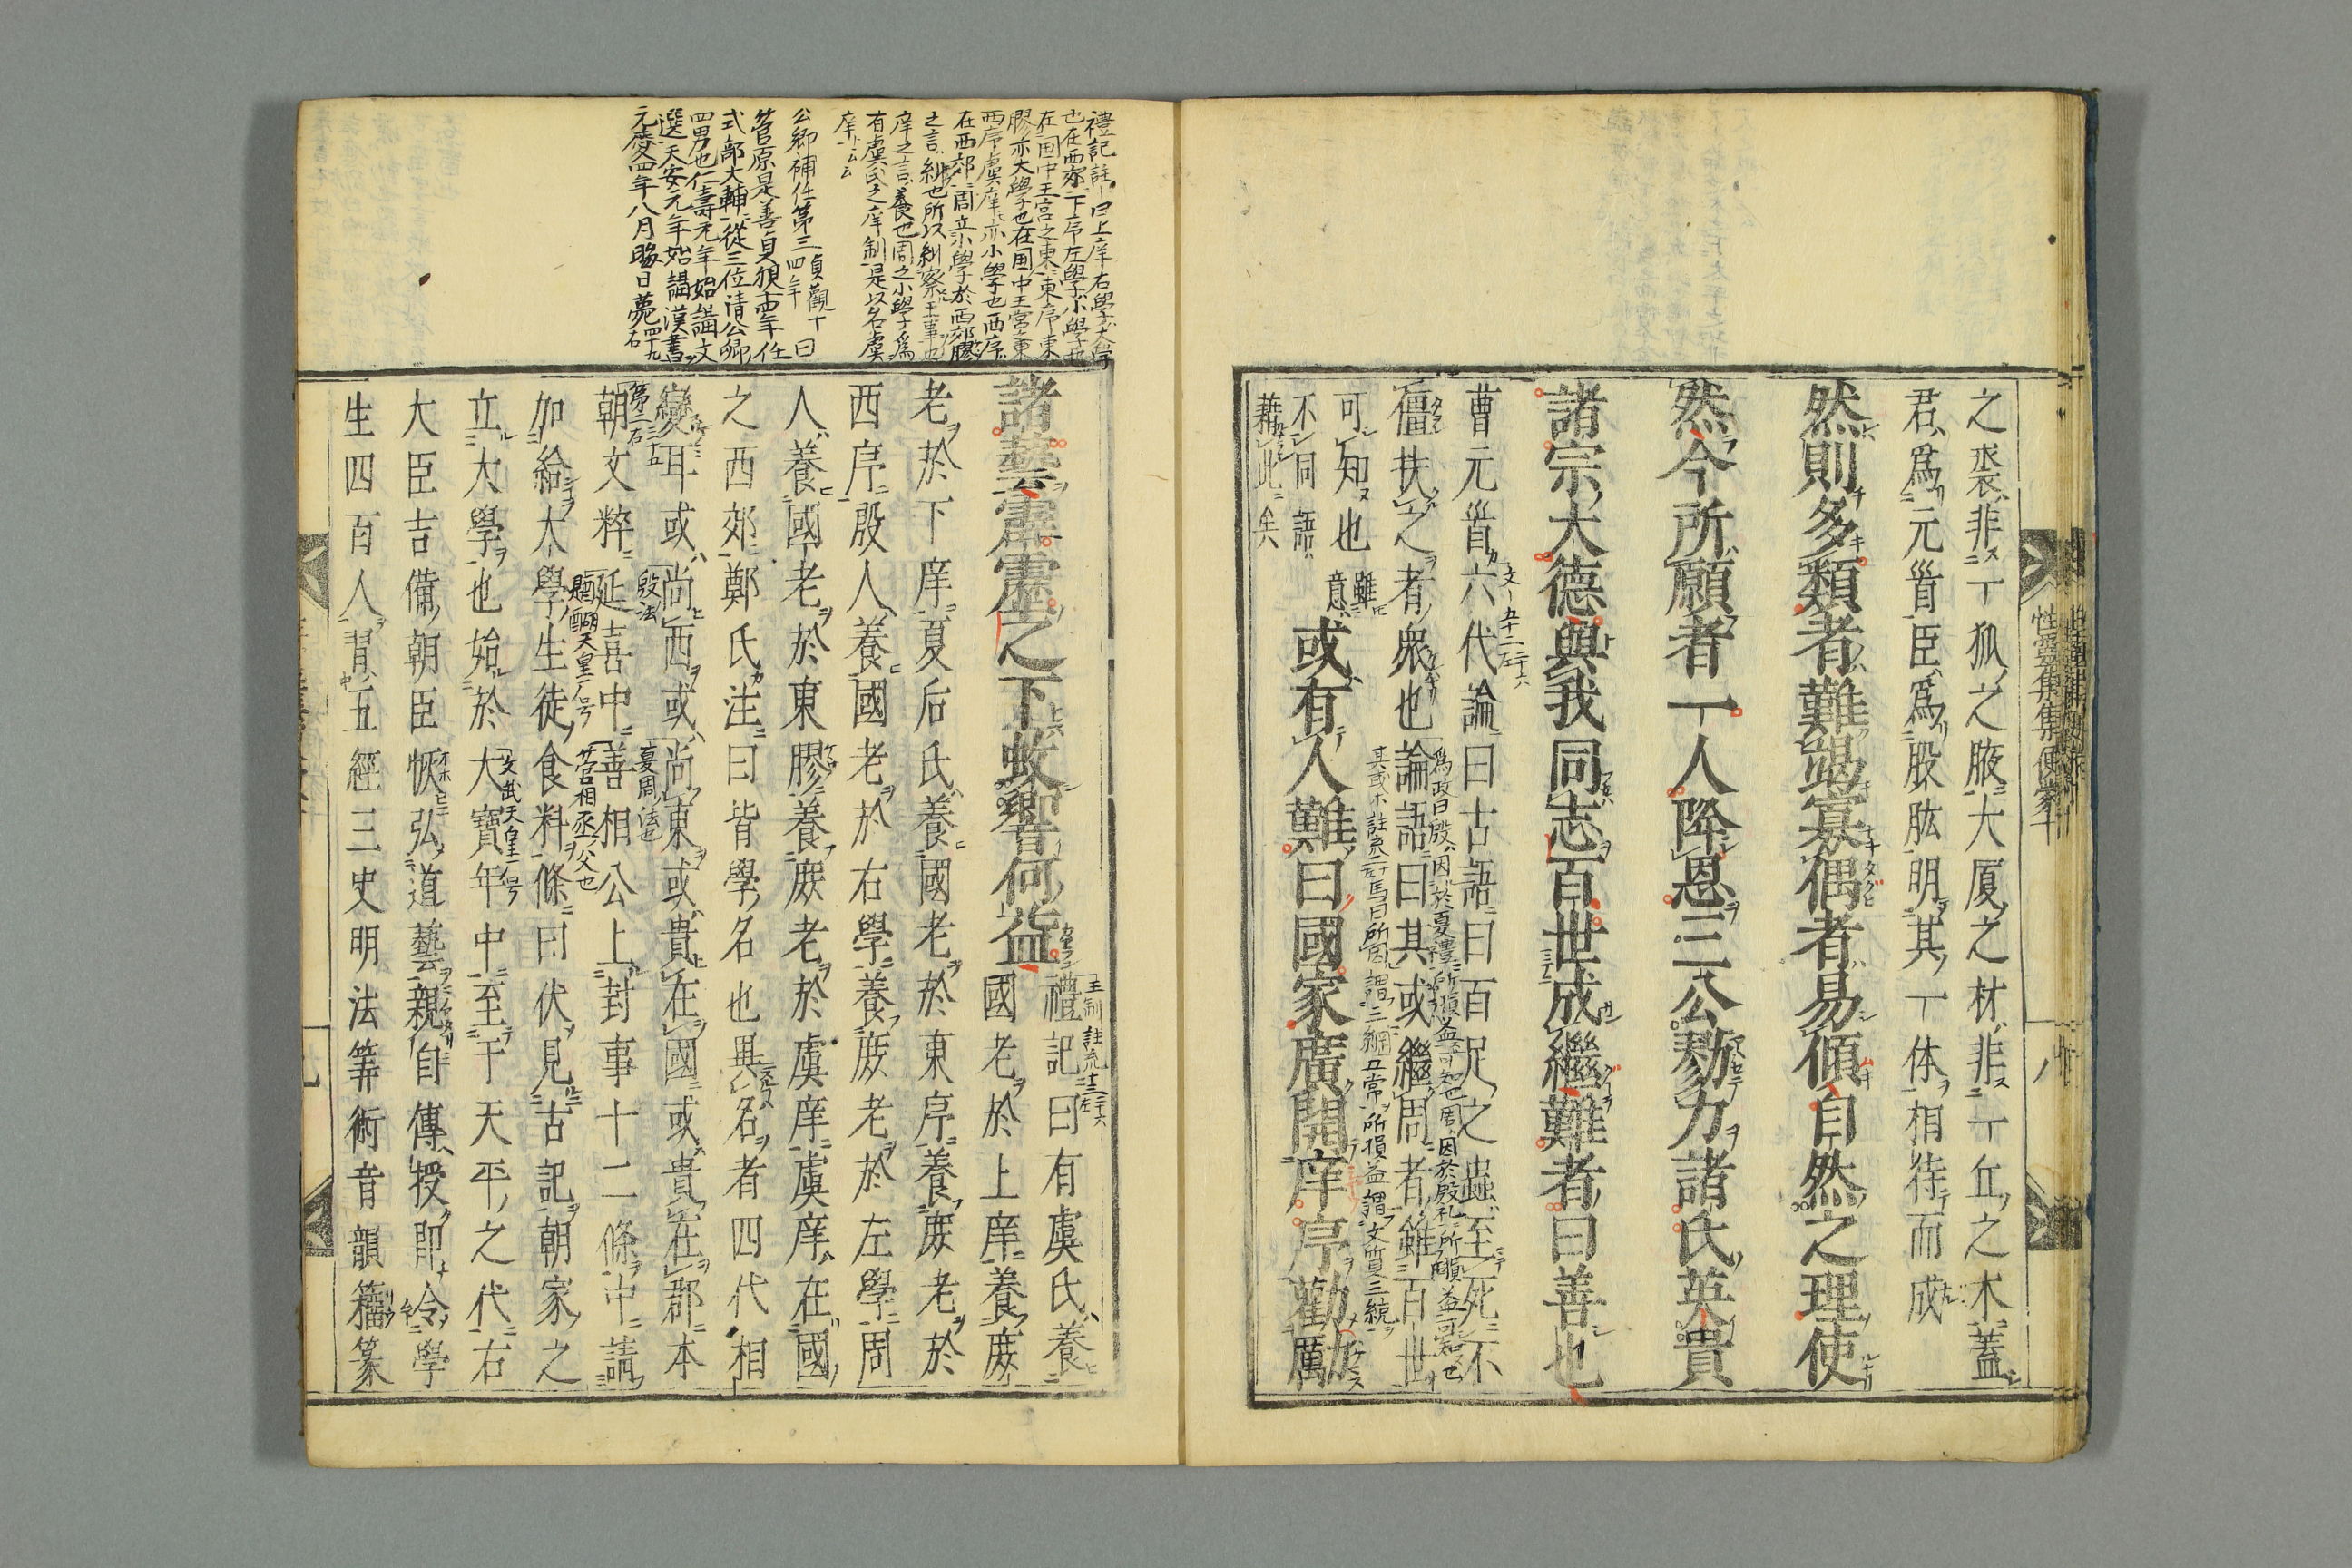 之裘非一狐之腋大厦之材非一丘之木蓋
君爲元首臣爲股肱明其一体相待而成
然則多類者難竭寡偶者易傾自然之理使
然今所願者一人降恩三公勠力諸氏英貴
諸宗大德與我同志百世成繼難者曰善也
曹元首六代論曰古語曰百足之蟲至死不
僵扶之者衆也論語曰其或繼周者雖百世
可知也
雖
意
不同語
藉此矣
或有人難曰國家廣開庠序勸勵
性靈集便蒙十
八
諸藝霹靂之下蚊響何益
禮記曰有虞氏養
國老於上庠養庶
老於下庠夏后氏養國老於東序養庶老於
西序殷人養國老於右學養庶老於左學周
人養國老於東膠養庶老於虞庠虞庠在國
之西郊鄭氏注曰皆學名也異名者四代相
變耳或尚西或尚東或貴在國或貴在郡本
朝文粹延喜中善相公上封事十二條中請
加給大學生徒食料條曰伏見古記朝家之
立大學也始於大寶年中至于天平之代右
大臣吉備朝臣恢弘道藝親自傳授即令學
生四百人習五經三史明法筭術音韻籀篆
禮記註曰上庠右學大學
也在西郊下庠左學小學也
在国中王宮之東東序東
膠亦大學也在国中王宮東
西序虞庠亦小學也西序
在西郊周立小學於西郊膠
之言糾也所以糾察王事也
庠之言養也周之小學爲
有虞氏之庠制是以名虞
庠云云
公卿補任第三貞觀十四年曰
菅原是善貞観十四年任
式部大輔從三位清公卿
四男也仁壽元年始講文
選天安元年始講漢書
元慶四年八月晦日薨
殷法
夏周法也
醍醐天皇年号
菅相丞父也
文武天皇年号